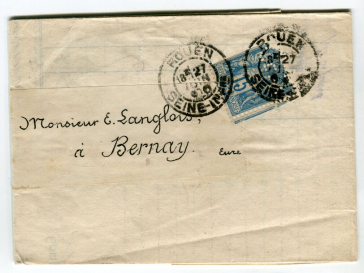 ROUEN
27
90
SEINE-INF
ROUEN
27
SEINE
15
Monsieur E. Langlois,
à Bernay. Eure